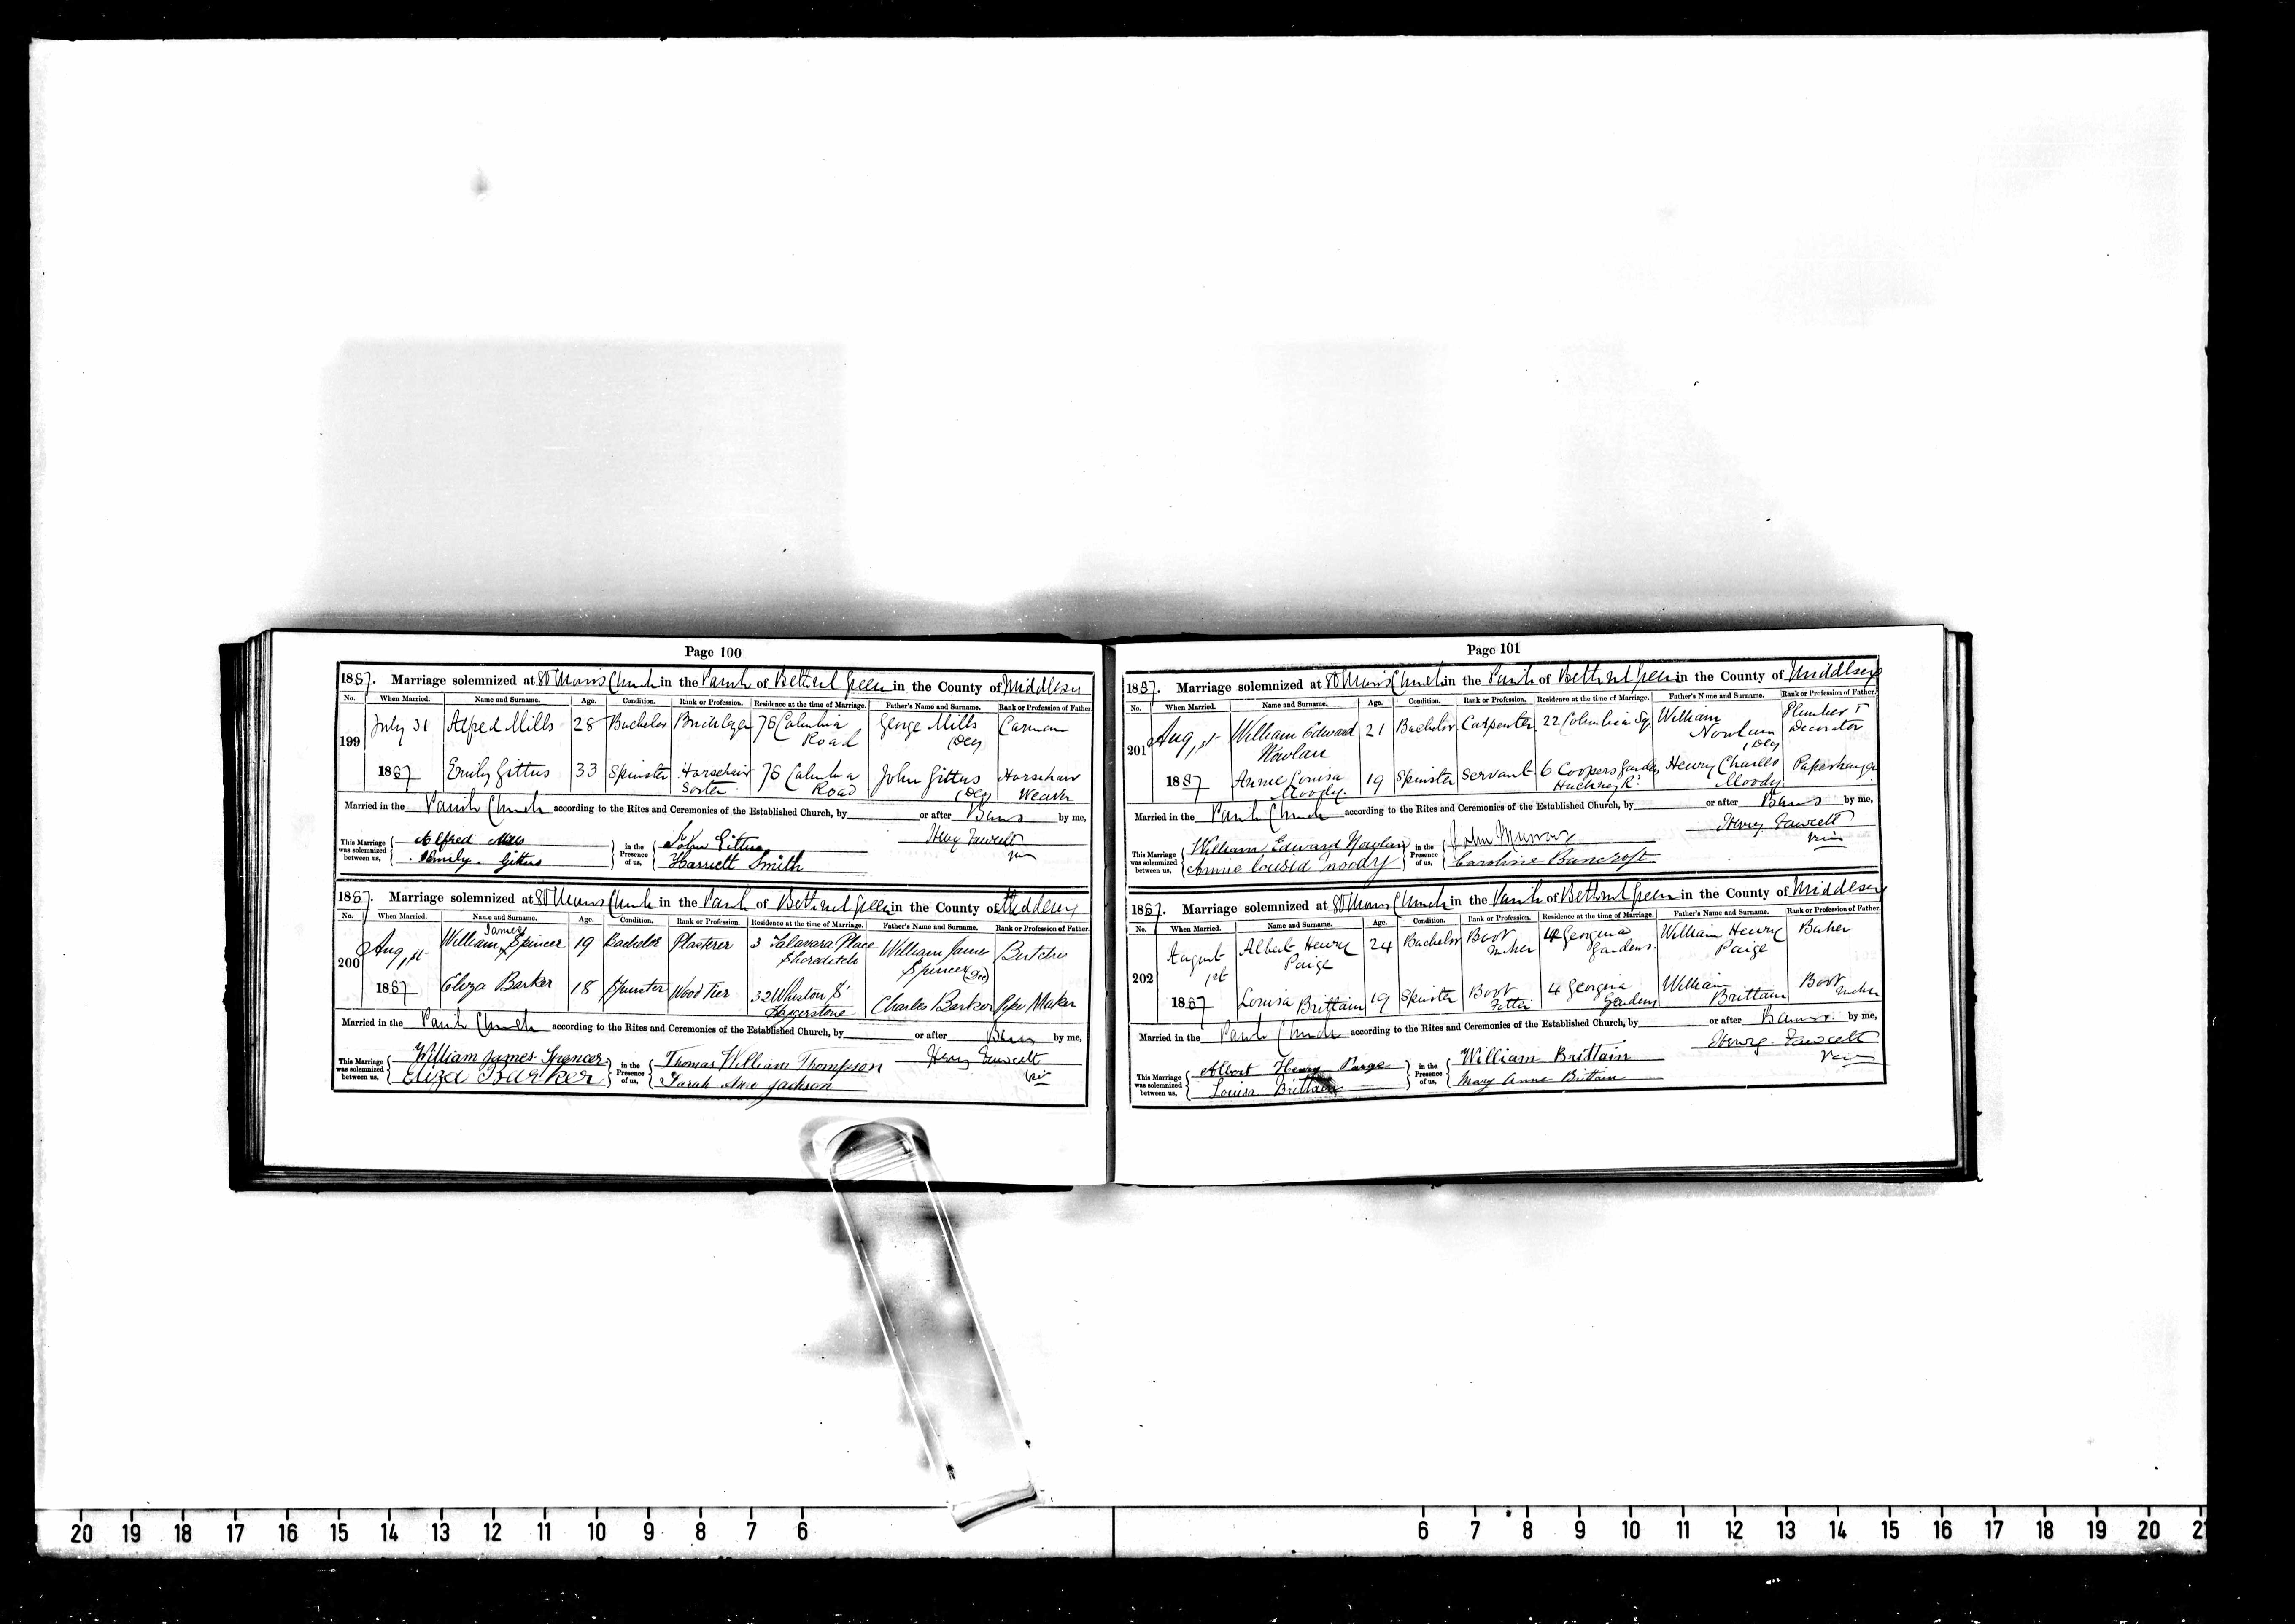 Page 100
1887. Marriage solemnized at St Thomas Church in the Parish of Bethnal Green in the County of Middlesex
No. When Married. Name and Surname. Age. Condition. Rank or Profession. Residence at the time of Marriage. Father's Name and Surname. Rank or Profession of Father.
199 July 31 Alfred Mills 28 Bachelor Bricklayer 76 Columbia Road George Mills (Dec) Carman
1887 Emily Gittus 33 Spinster Horsehair Sorter 76 Columbia Road John Gittus (Dec) Horsehair Weaver
Married in the Parish Church according to the Rites and Ceremonies of the Established Church, by or after Banns by me,
This Marriage was solemnized between us, Alfred Mills in the Presence of us, John Gittus Henry Fawcett
Emily Gittus Harriett Smith Vicar
1887. Marriage solemnized at St Thomas Church in the Parish of Bethnal Green in the County of Middlesex
No. When Married. Name and Surname. Age. Condition. Rank or Profession. Residence at the time of Marriage. Father's Name and Surname. Rank or Profession of Father.
200 Aug 1st William James Spencer 19 Bachelor Plasterer 3 Talavara Place Shoreditch William James Spencer (Dec) Butcher
1887 Eliza Barker 18 Spinster Wood Tier 32 Whiston St Haggerstone Charles Barker Pipe Maker
Married in the Parish Church according to the Rites and Ceremonies of the Established Church, by or after Banns by me,
This Marriage was solemnized between us, William James Spencer in the Presence of us, Thomas William Thompson Henry Fawcett
Eliza Barker Sarah Ann Jackson Vicar
Page 101
1887. Marriage solemnized at St Thomas Church in the Parish of Bethnal Green in the County of Middlesex
No. When Married. Name and Surname. Age. Condition. Rank or Profession. Residence at the time of Marriage. Father's Name and Surname. Rank or Profession of Father.
201 Aug 1st William Edward Nowlan 21 Bachelor Carpenter 22 Columbia Sq. William Nowlan (Dec) Plumber & Decorator
1887 Annie Louisa Moody. 19 Spinster Servant 6 Coopers Gardens Hackney Rd. Henry Charles Moody. Paperhanger
Married in the Parish Church according to the Rites and Ceremonies of the Established Church, by or after Banns by me,
This Marriage was solemnized between us, William Edward Nowlan in the Presence of us, John Henry Fawcett
Annie louisa moody Caroline Bancroft Vicar
1887. Marriage solemnized at St Thomas Church in the Parish of Bethnal Green in the County of Middlesex
No. When Married. Name and Surname. Age. Condition. Rank or Profession. Residence at the time of Marriage. Father's Name and Surname. Rank or Profession of Father.
202 August 1st Albert Henry Paige 24 Bachelor Boot maker 4 Georgina Gardens. William Henry Paige Baker
1887 Louisa Brittain 19 Spinster Boot Fitter 4 Georgina Gardens William Brittain Boot maker
Married in the Parish Church according to the Rites and Ceremonies of the Established Church, by or after Banns by me,
This Marriage was solemnized between us, Albert Henry Paige in the Presence of us, William Brittain Henry Fawcett
Louisa Brittain Mary Anne Brittain Vicar
20 19 18 17 16 15 14 13 12 11 10 9 8 7 6 6 7 8 9 10 11 12 13 14 15 16 17 18 19 20